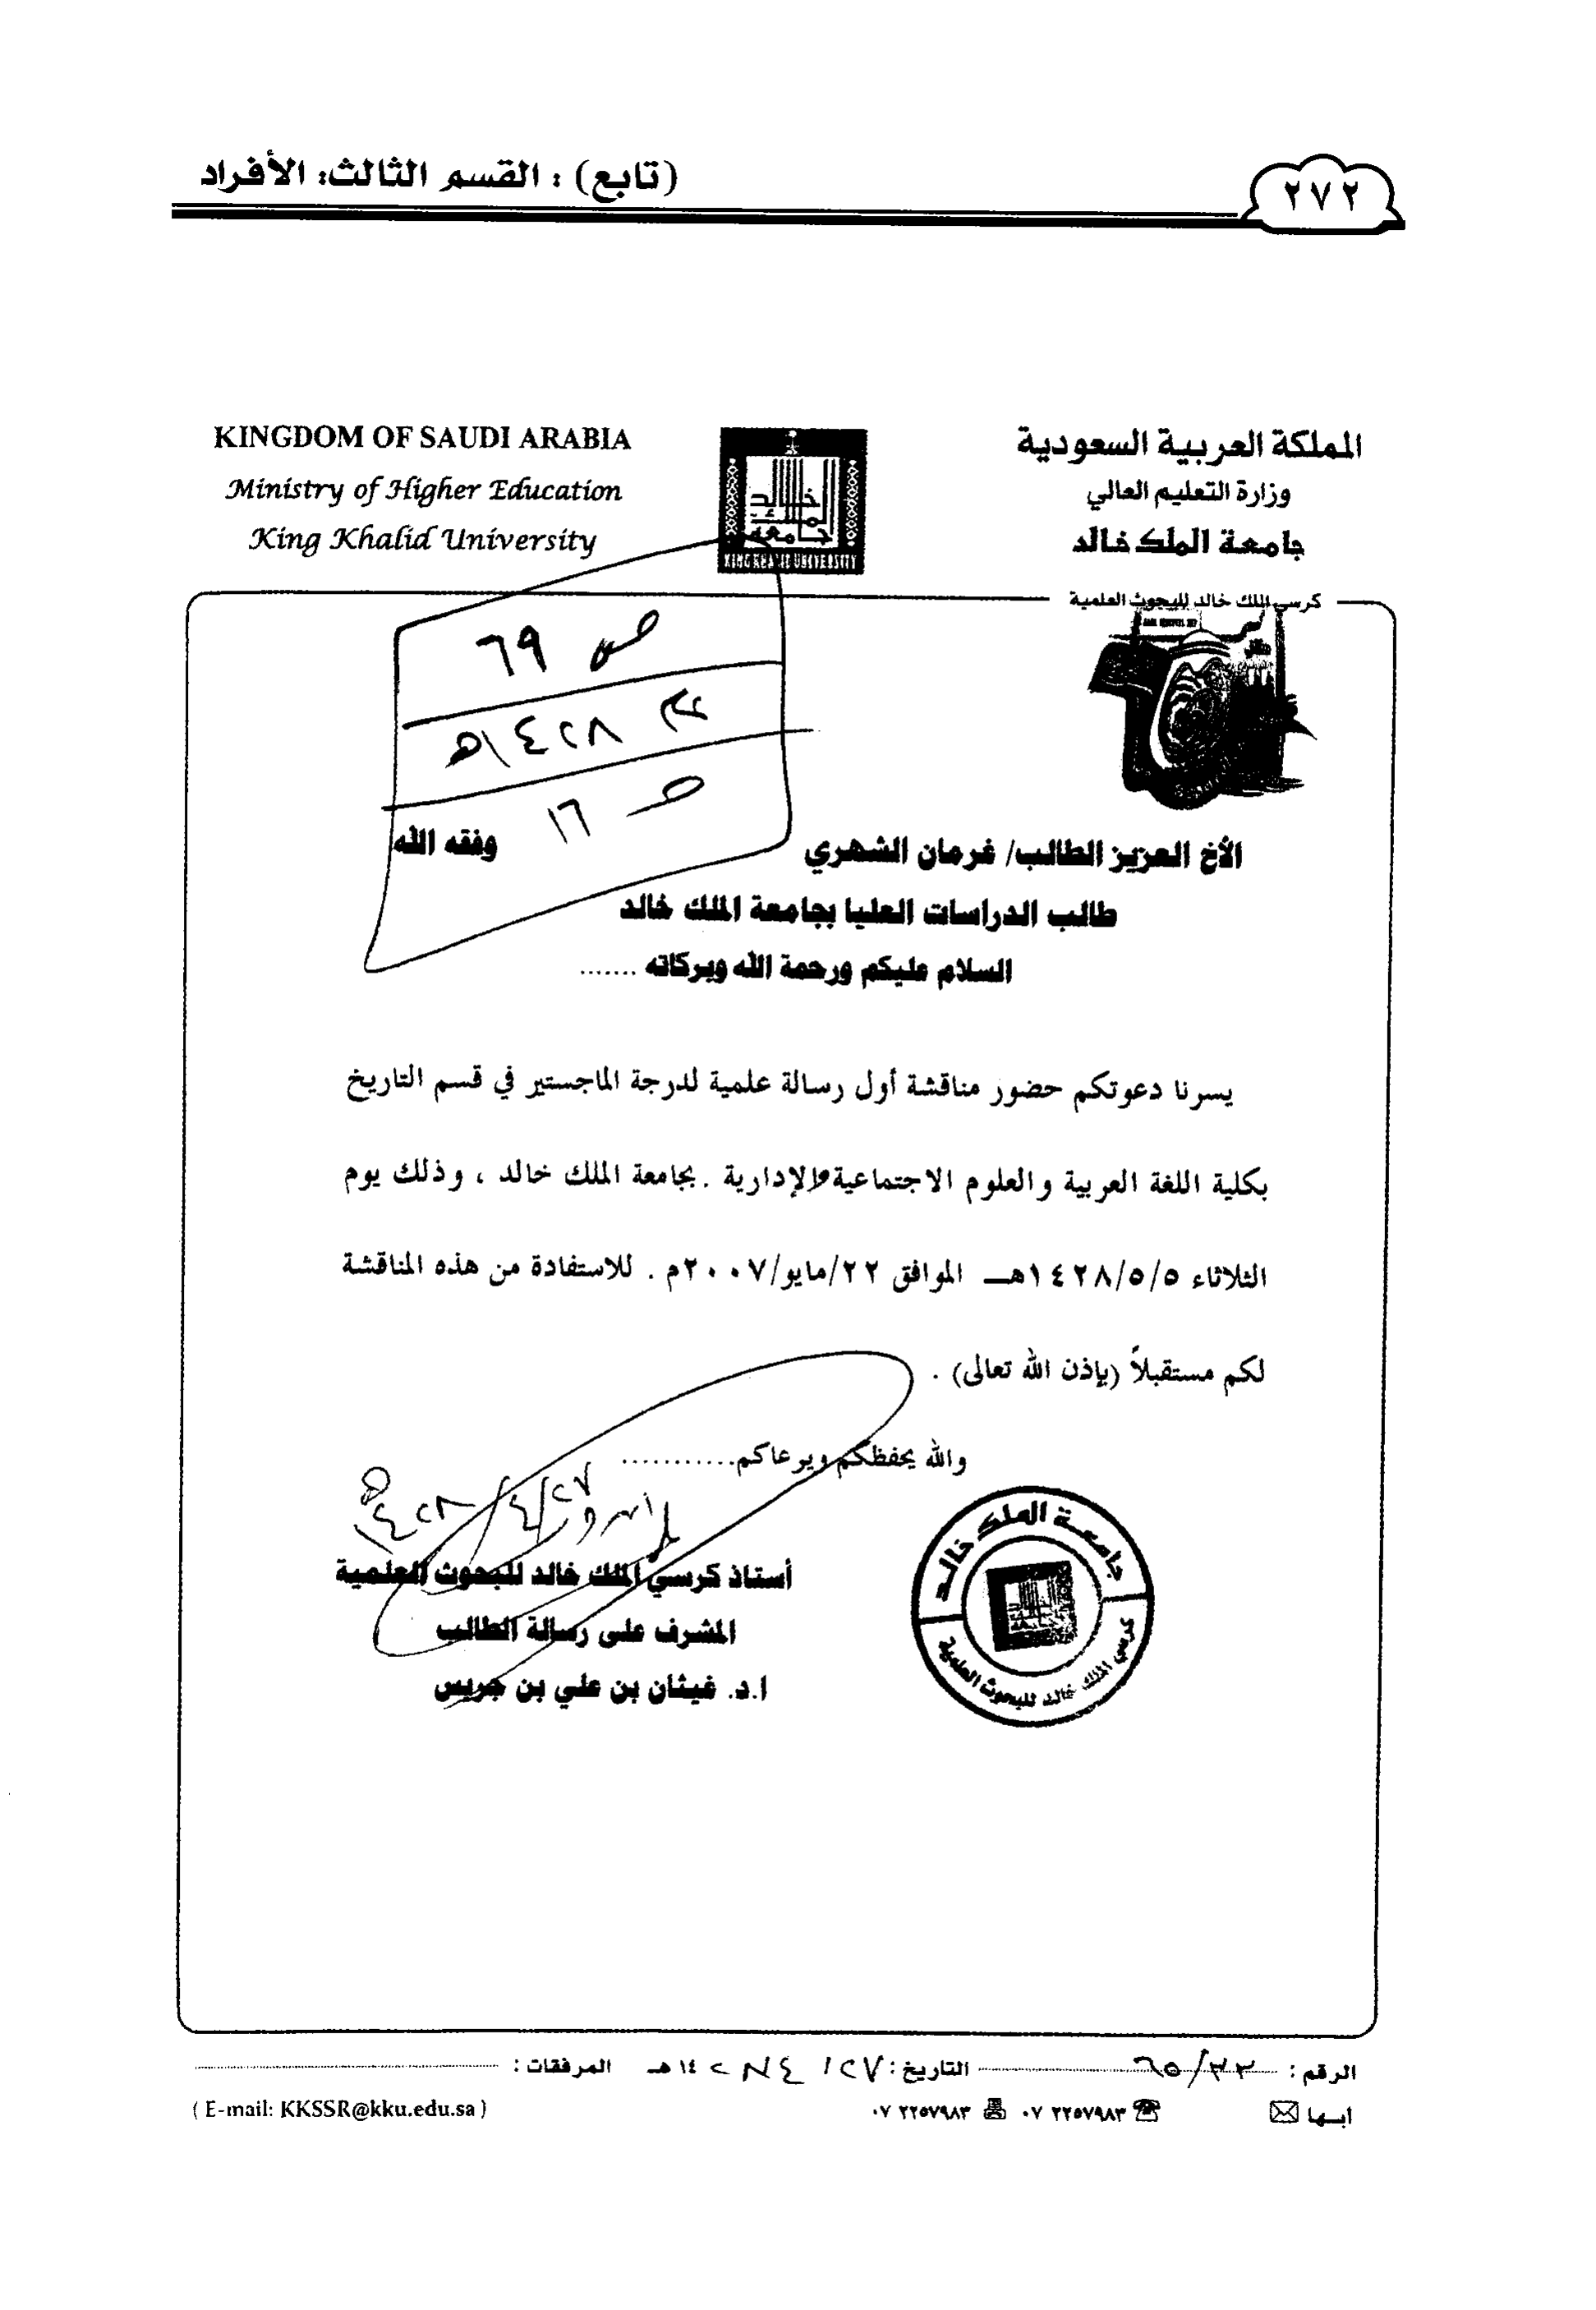 ٢٧٢
(تابع) : القسم الثالث: الأفراد
المملكة العربية السعودية
وزارة التعليم العالي
جامعة الملك خالد
KINGDOM OF SAUDI ARABIA
Ministry of Higher Education
King Khalid University
جامعة الملك خالد
KING KHALID UNIVERSITY
كرسي الملك خالد للبحوث العلمية
ص ٦٩
عام ١٤٢٨هـ
ص ١٦
الأخ العزيز الطالب/ غرمان الشهري وفقه الله
طالب الدراسات العليا بجامعة الملك خالد
السلام عليكم ورحمة الله وبركاته .......
يسرنا دعوتكم حضور مناقشة أول رسالة علمية لدرجة الماجستير في قسم التاريخ
بكلية اللغة العربية والعلوم الاجتماعية والإدارية .بجامعة الملك خالد ، وذلك يوم
الثلاثاء ١٤٢٨/٥/٥هـ الموافق ٢٢/مايو/٢٠٠٧م . للاستفادة من هذه المناقشة
لكم مستقبلاً (بإذن الله تعالى) .
والله يحفظكم ويرعاكم...........
١٤٢٨/٤/٢٧هـ
أستاذ كرسي الملك خالد للبحوث العلمية
المشرف على رسالة الطالب
ا.د. غيثان بن علي بن جريس
جامعة الملك خالد
كرسي الملك خالد للبحوث العلمية
الرقم : ٦٥/٣٢ التاريخ : ٢٧/ ٤/ ١٤٢٨هـ المرفقات :
ابها ٠٧ ٢٢٥٧٩٨٣ ٠٧ ٢٢٥٧٩٨٣
( E-mail: KKSSR@kku.edu.sa )